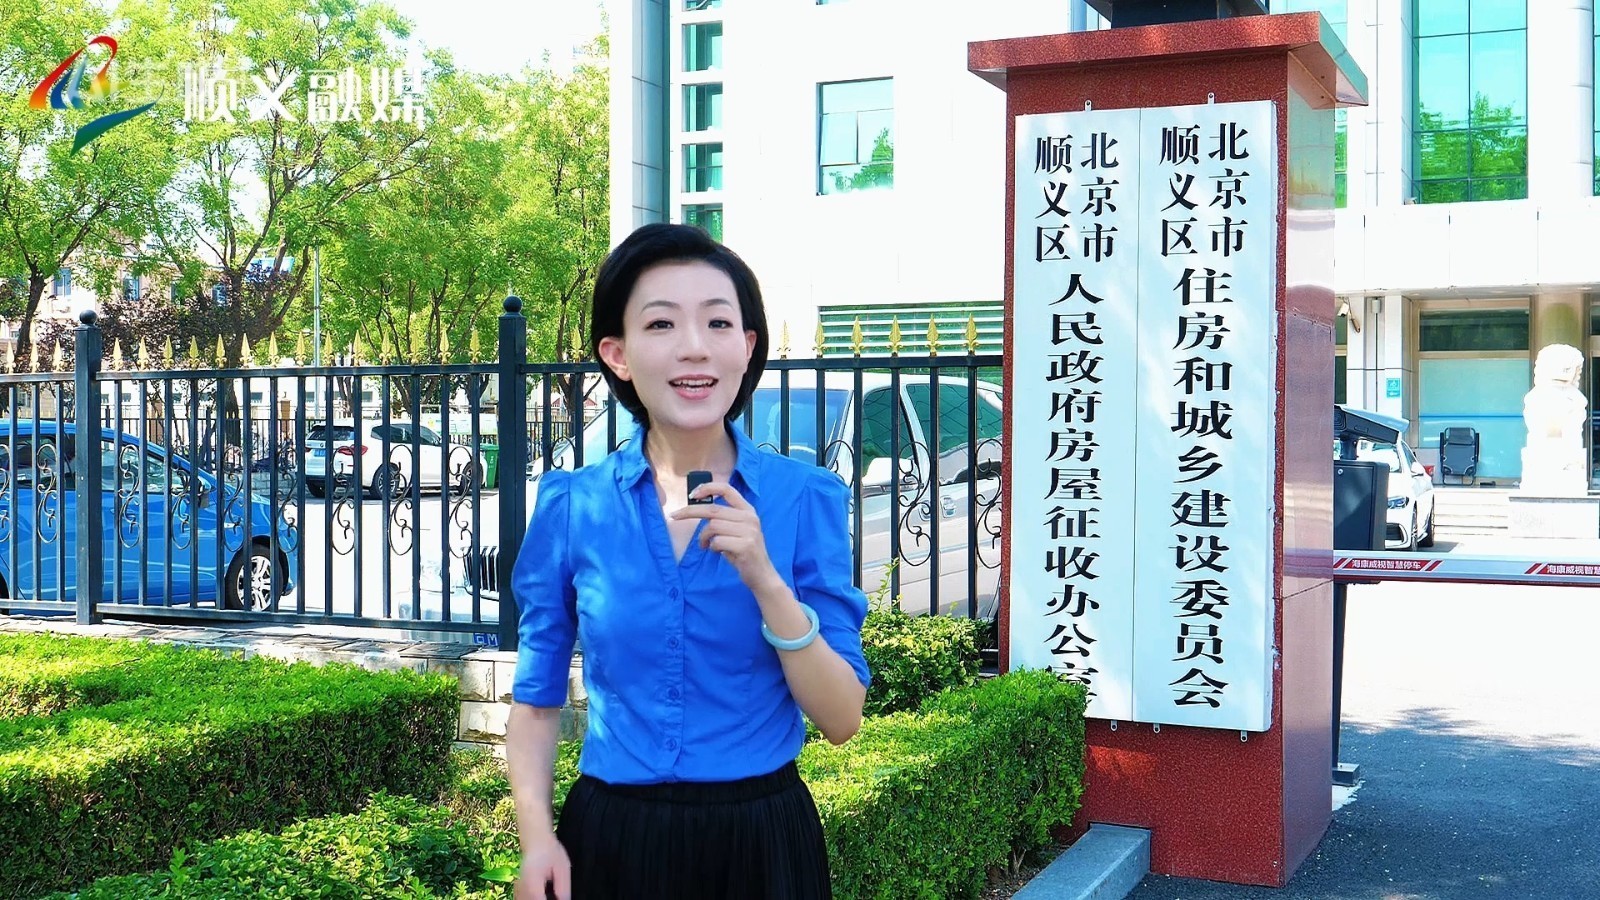 顺义融媒
北京市
顺义区
住房和城乡建设委员会
北京市
顺义区
人民政府房屋征收办公室
海康威视智慧停车
海康威视智慧